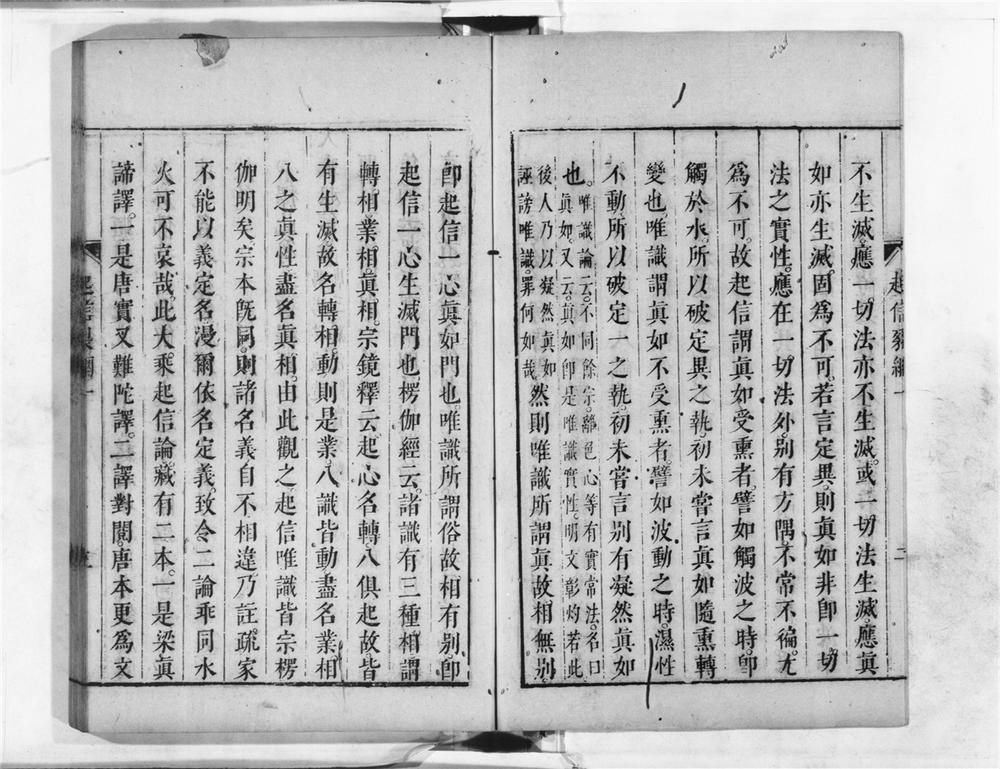 不生滅。應一切法亦不生滅。或一切法生滅。應眞
如亦生滅。固爲不可。若言定異。則眞如非卽一切
法之實性。應在一切法外。別有方隅。不常不徧。尤
爲不可。故起信謂眞如受熏者。譬如觸波之時。卽
觸於水。所以破定異之執。初未嘗言眞如隨熏轉
變也。唯識謂眞如不受熏者。譬如波動之時。濕性
不動。所以破定一之執。初未嘗言別有凝然眞如
也。唯識論云。不同餘宗。離色心等有實常法。名曰
眞如。又云。眞如卽是唯識實性。明文彰灼若此
後人乃以凝然眞如
誣謗唯識。罪何如哉。然則唯識所謂眞故相無別。
卽起信一心眞如門也。唯識所謂俗故相有別。卽
起信一心生滅門也。楞伽經云。諸識有三種相。謂
轉相業相眞相。宗鏡釋云。起心名轉。八俱起故。皆
有生滅。故名轉相。動則是業。八識皆動。盡名業相
八之眞性。盡名眞相。由此觀之。起信唯識。皆宗楞
伽明矣。宗本旣同。則諸名義自不相違。乃註疏家
不能以義定名。漫爾依名定義。致令二論乖同水
火。可不哀哉。此大乘起信論。藏有二本。一是梁眞
諦譯。一是唐實叉難陀譯。二譯對閱。唐本更爲文
起信裂網一
二